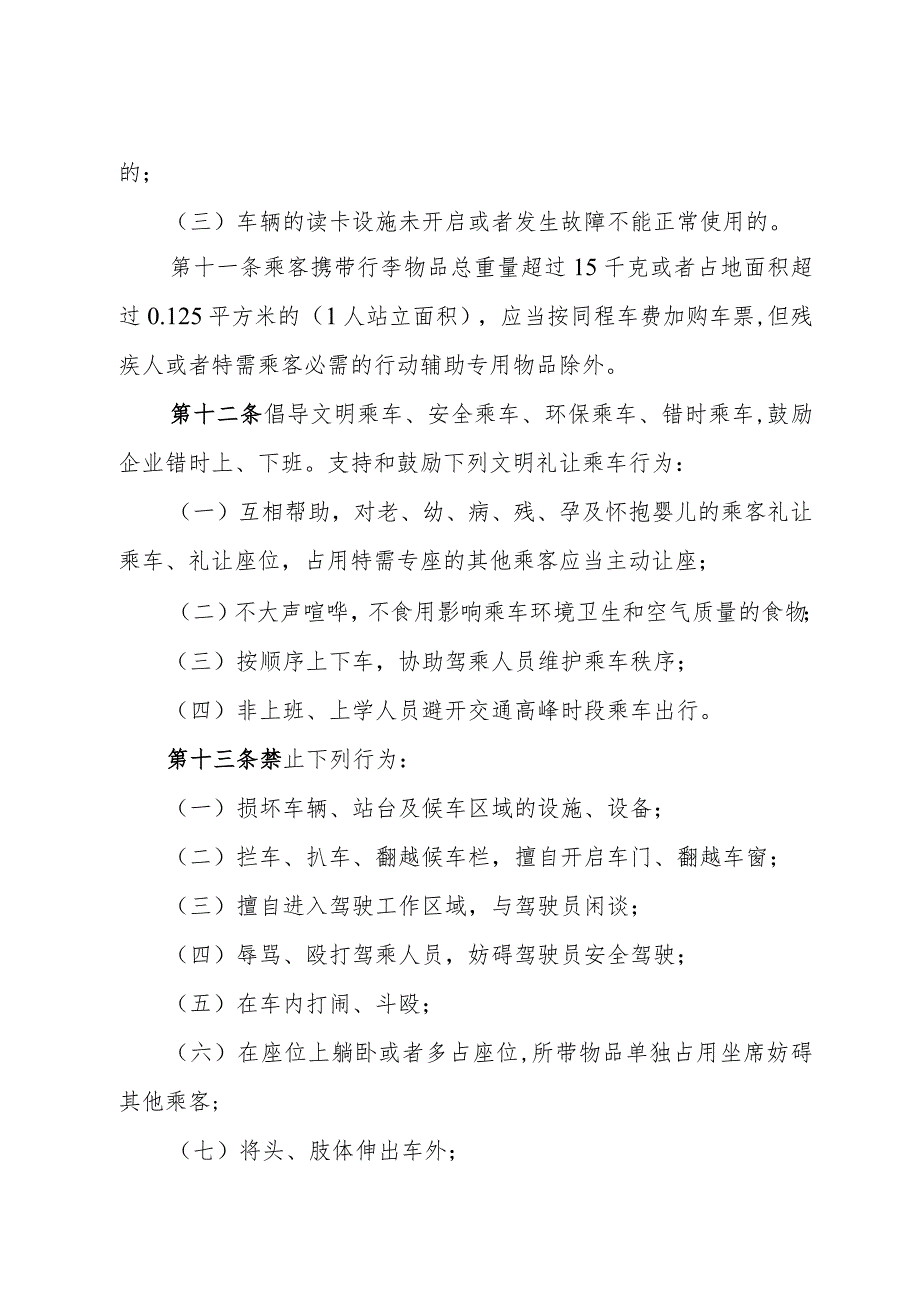 的；
（三）车辆的读卡设施未开启或者发生故障不能正常使用的。
第十一条乘客携带行李物品总重量超过15千克或者占地面积超
过0.125平方米的（1人站立面积），应当按同程车费加购车票,但残
疾人或者特需乘客必需的行动辅助专用物品除外。
第十二条倡导文明乘车、安全乘车、环保乘车、错时乘车,鼓励
企业错时上、下班。支持和鼓励下列文明礼让乘车行为：
（一）互相帮助，对老、幼、病、残、孕及怀抱婴儿的乘客礼让
乘车、礼让座位，占用特需专座的其他乘客应当主动让座；
（二）不大声喧哗，不食用影响乘车环境卫生和空气质量的食物；
（三）按顺序上下车，协助驾乘人员维护乘车秩序；
（四）非上班、上学人员避开交通高峰时段乘车出行。
第十三条禁止下列行为：
（一）损坏车辆、站台及候车区域的设施、设备；
（二）拦车、扒车、翻越候车栏，擅自开启车门、翻越车窗；
（三）擅自进入驾驶工作区域，与驾驶员闲谈；
（四）辱骂、殴打驾乘人员，妨碍驾驶员安全驾驶；
（五）在车内打闹、斗殴；
（六）在座位上躺卧或者多占座位,所带物品单独占用坐席妨碍
其他乘客；
（七）将头、肢体伸出车外；